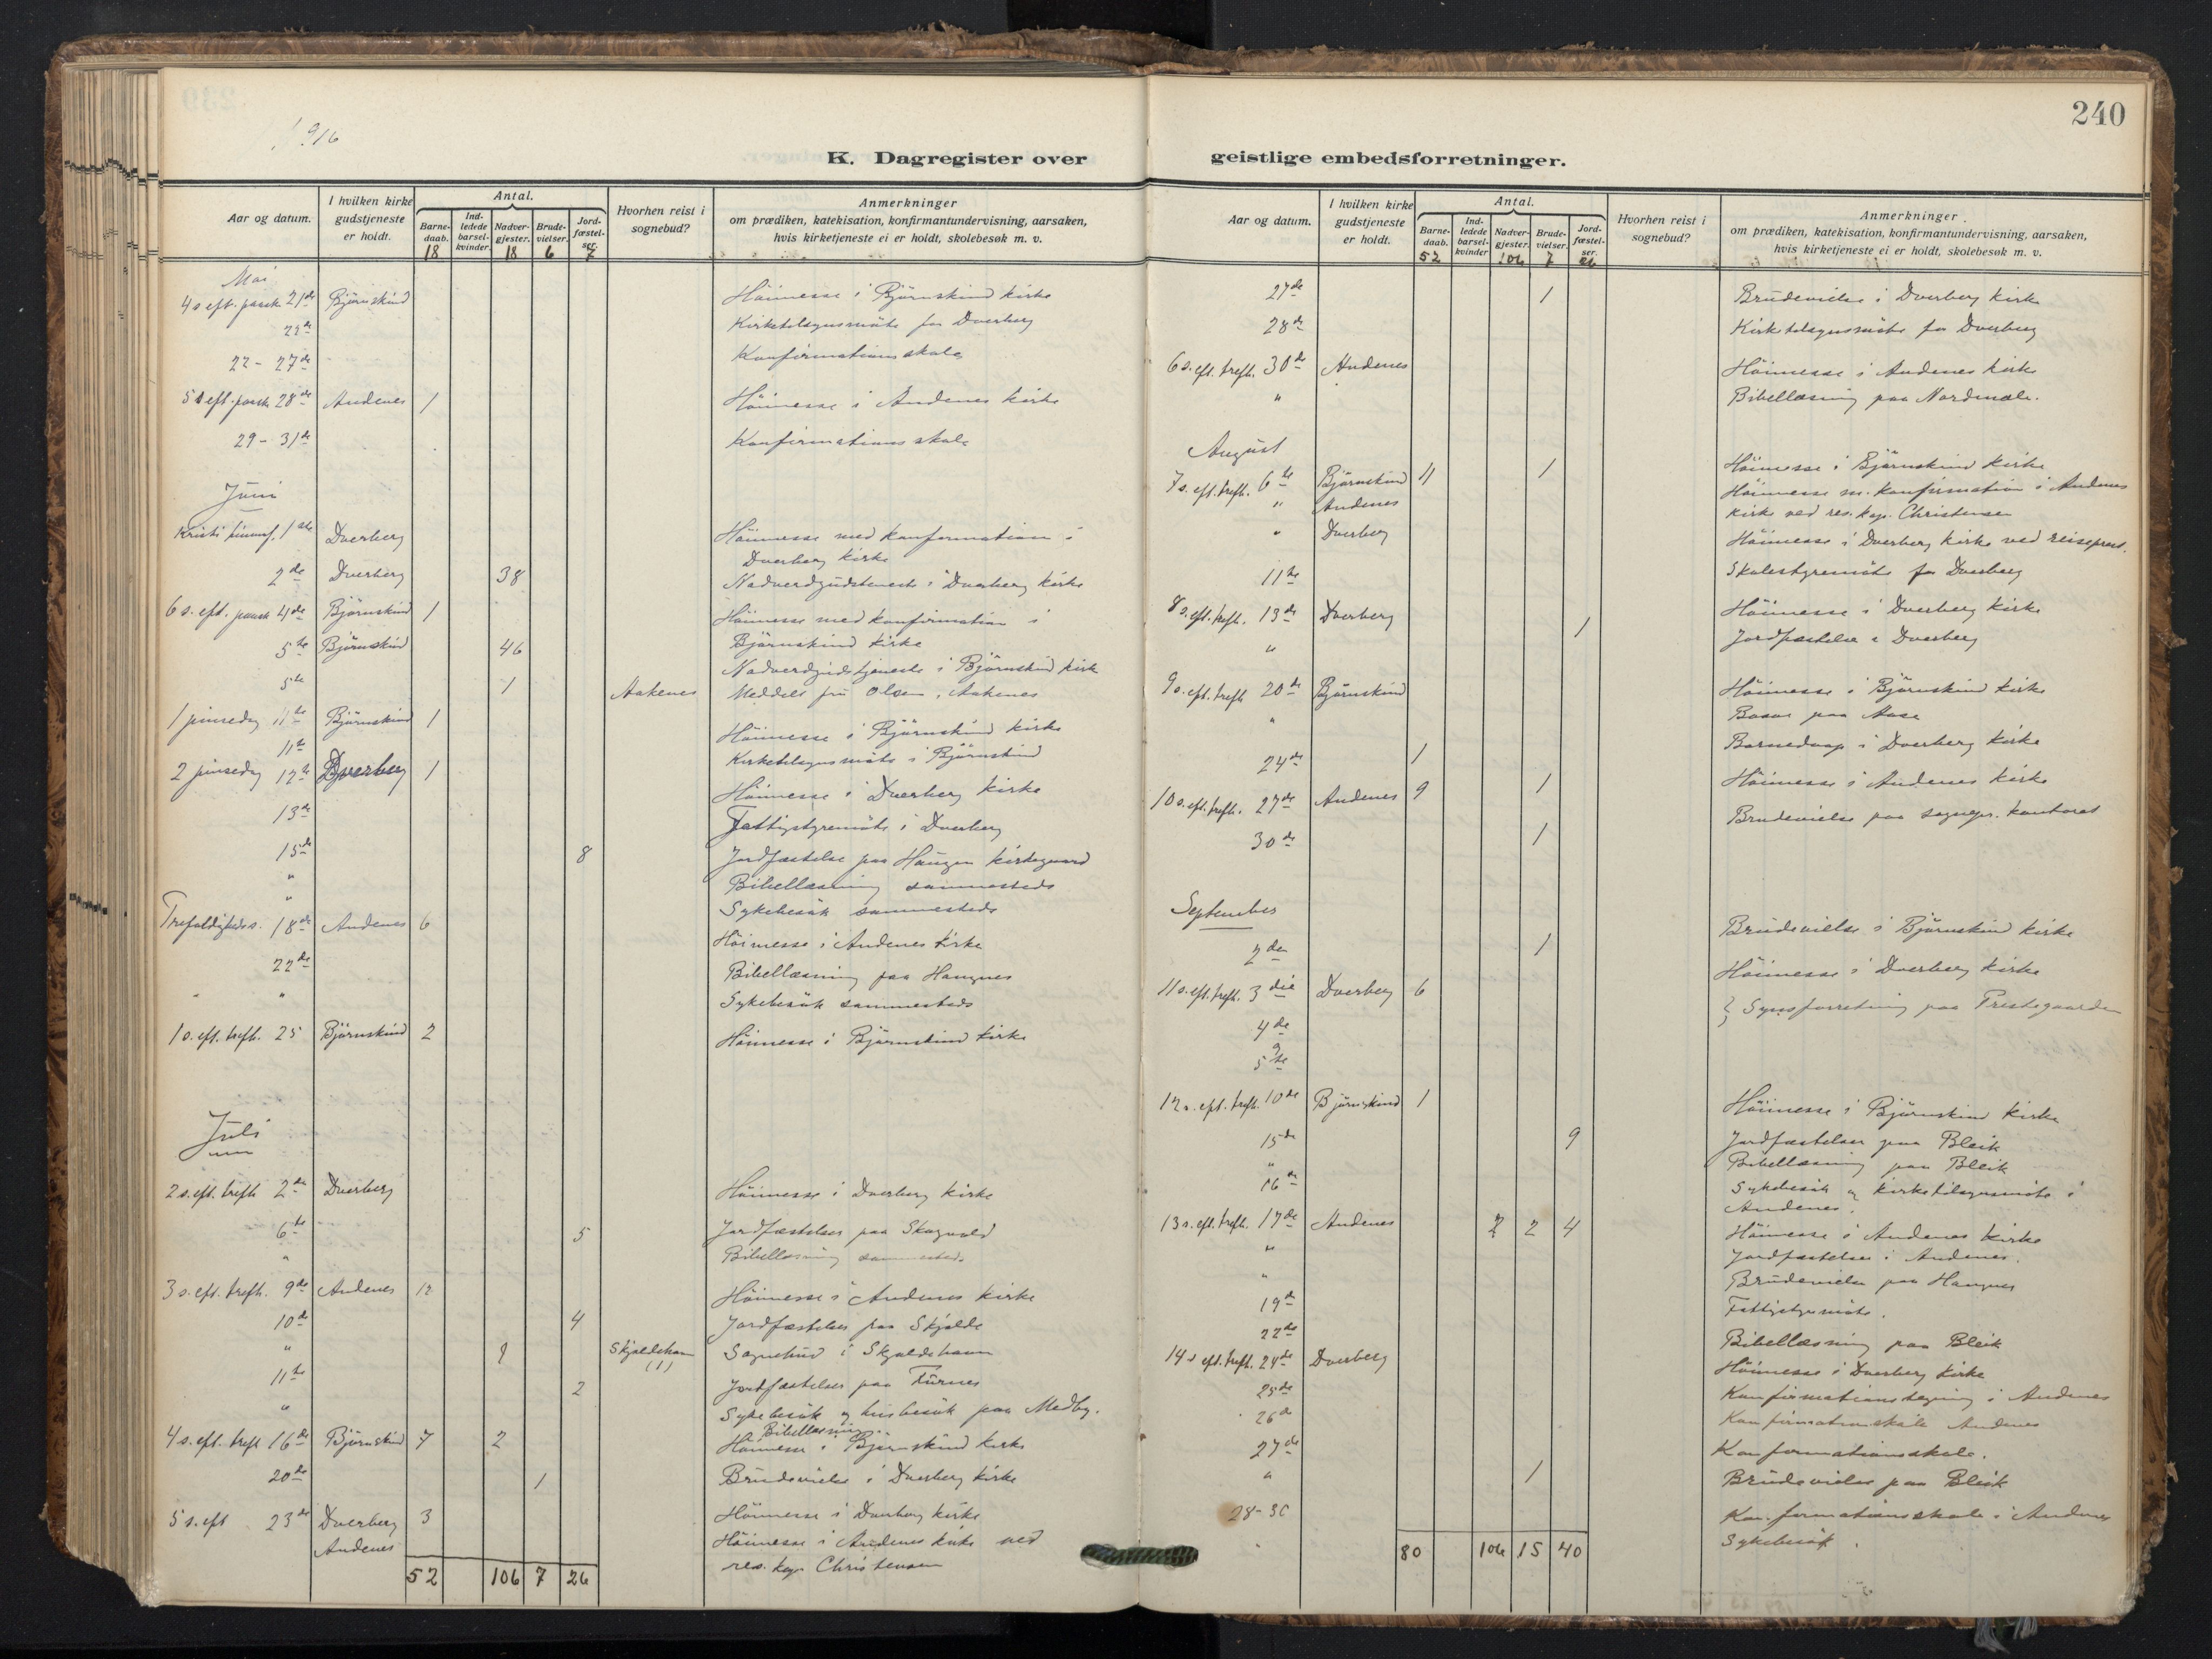 1916
240
K. Dagregister over geistlige embedsforretninger.
Aar og datum. | I hvilken kirke gudstjeneste er holdt. | Antal. | Barnedaab. | Indledede barselkvinder | Nadvergjester. | Brudevielser. | Jordfæstelser. | Hvorhen reist i sognebud? | Anmerkninger om prædiken, katekisation, konfirmantundervisning, aarsaken, hvis kirketjeneste ei er holdt, skolebesøk m. v.
18 18 6 7
Mai
4 s eft. paask 21de Bjørnskind Höimesse i Bjørnskind kirke
22de Kirketilsynsmöte for Dverberg
22 - 27de Konfirmationsskole
5 s eft. paask 28de Andenes 1 Höimesse i Andenes kirke
29 - 31te Konfirmationsskole
Juni
Kristi himmf. 1ste Dverberg Höimesse med konfirmation i
Dverberg kirke
2de Dverberg 38 Nadverdgudstjeneste i Dverberg kirke
6 s. eft. paask 4de Bjørnskind 1 Höimesse med konfirmation i
Bjørnskind kirke
5te Bjørnskind 46 Nadverdgudstjeneste i Bjørnskind kirke
5te 1 Aakenes Meddelt fru Olsen, Aakenes
1 pinsedag 11te Bjørnskind 1 Höimesse i Bjørnskind kirke
11te Kirketilsynsmöte i Bjørnskind
2 pinsedag 12te Dverberg 1 Höimesse i Dverberg kirke
13de Fattigstyremöte i Dverberg
15de 8 Jordfæstelse paa Haugen kirkegaard
" Bibellæsning sammesteds
" Sykebesök sammesteds
Trefoldigheds s. 18de Andenes 6 Höimesse i Andenes kirke
22de Bibellæsning paa Haugnes
" " Sykebesök sammesteds
1 s. eft. trefh. 25 Bjørnskind 2 Höimesse i Bjørnskind kirke
Juli
2 s. eft. trefh 2de Dverberg Höimesse i Dverberg kirke
6te 5 Jordfæstelser paa Skogvold
" Bibellæsning sammesteds
3 s. eft. trefh. 9de Andenes 12 Höimesse i Andenes kirke
10de 4 Jordfæstelser paa Skjolde
" 1 Skjoldehavn (1) Sognebud i Skjoldehavn
11te 2 Jordfæstelser paa Furnes
" Sykebesök og husbesök paa Medby.
Bibellæsning
4 s. eft. trefh 16de Bjørnskind 7 2 Höimesse i Bjørnskind kirke
20de 1 Brudevielse i Dverberg kirke
5 s. eft 23de Dverberg 3 Höimesse i Dverberg kirke
Andenes Höimesse i Andenes kirke ved
res. kap. Christensen
52 106 7 26
Aar og datum. | I hvilken kirke gudstjeneste er holdt. | Antal. | Barnedaab. | Indledede barselkvinder | Nadvergjester. | Brudevielser. | Jordfæstelser. | Hvorhen reist i sognebud? | Anmerkninger om prædiken, katekisation, konfirmantundervisning, aarsaken, hvis kirketjeneste ei er holdt, skolebesøk m. v.
52 106 7 26
27de 1 Brudevielse i Dverberg kirke
28de Kirketilsynsmöte for Dverberg
6 s. eft. trefh. 30de Andenes Höimesse i Andenes kirke
" Bibellæsning paa Nordmæle.
August
7 s. eft. trefh. 6te Bjørnskind 11 1 Höimesse i Bjørnskind kirke
" Andenes Höimesse m. konfirmation i Andenes
kirke ved res. kap. Christensen
" Dverberg Höimesse i Dverberg kirke ved reiseprest.
11te Skolestyremöte for Dverberg
8 s. eft. trefh. 13de Dverberg Höimesse i Dverberg kirke
" 1 Jordfæstelse i Dverberg
9 s. eft. trefh 20de Bjørnskind Höimesse i Bjørnskind kirke
" Basar paa Aase
24de 1 Barnedaap i Dverberg kirke
10 s. eft. trefh. 27de Andenes 9 1 Höimesse i Andenes kirke
30de 1 Brudevielse paa sognepr. kontoret
September
2den 1 Brudevielse i Bjørnskind kirke
11 s. eft. trefh. 3die Dverberg 6 Höimesse i Dverberg kirke
4de Synsforretning paa Prestegaarden
5te
12 s. eft. trefh. 10de Bjørnskind 1 Höimesse i Bjørnskind kirke
15de 9 Jordfæstelser paa Bleik
" Bibellæsning paa Bleik
16de Sykebesök og kirketilsynsmöte i
Andenes.
13 s. eft. trefh. 17de Andenes 2 2 4 Höimesse i Andenes kirke
" Jordfæstelser i Andenes.
" Brudevielse paa Haugnes
19de Fattigstyremöte.
22de Bibellæsning paa Bleik
14 s eft. trefh. 24de Dverberg Höimesse i Dverberg kirke
25de Konfirmationstegning i Andenes
26de Konfirmationsskole Andenes
27de Konfirmationsskole.
" 1 Brudevielse paa Bleik
28-30 Konfirmationsskole i Andenes
" Sykebesök.
80 106 15 40